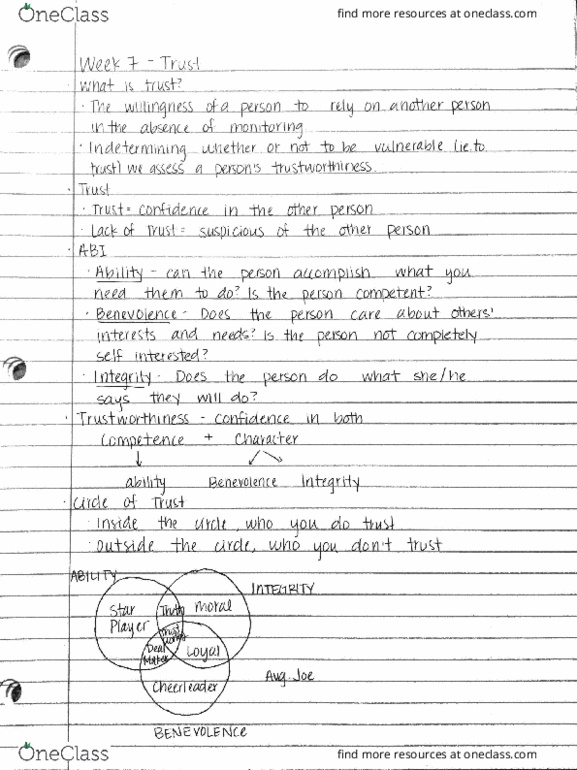 OneClass
find more resources at oneclass.com
Week 7 - Trust
What is trust?
· The willingness of a person to rely on another person
in the absence of monitoring
· Indetermining whether or not to be vulnerable (ie. to
trust) we assess a person's trustworthiness.
· Trust
· Trust = confidence in the other person
· Lack of Trust = suspicious of the other person
· ABI
· Ability - can the person accomplish what you
need them to do? Is the person competent?
· Benevolence - Does the person care about others'
interests and needs? Is the person not completely
self interested?
· Integrity - Does the person do what she/he
says they will do?
· Trustworthiness - confidence in both
Competence + Character
ability Benevolence Integrity
· Circle of Trust
· Inside the circle, who you do trust
· Outside the circle, who you don't trust
ABILITY
INTEGRITY
Star
Player
Truth
Moral
Trust
Deal
Maker
Loyal
Cheerleader
Avg. Joe
BENEVOLENCE
OneClass
find more resources at oneclass.com